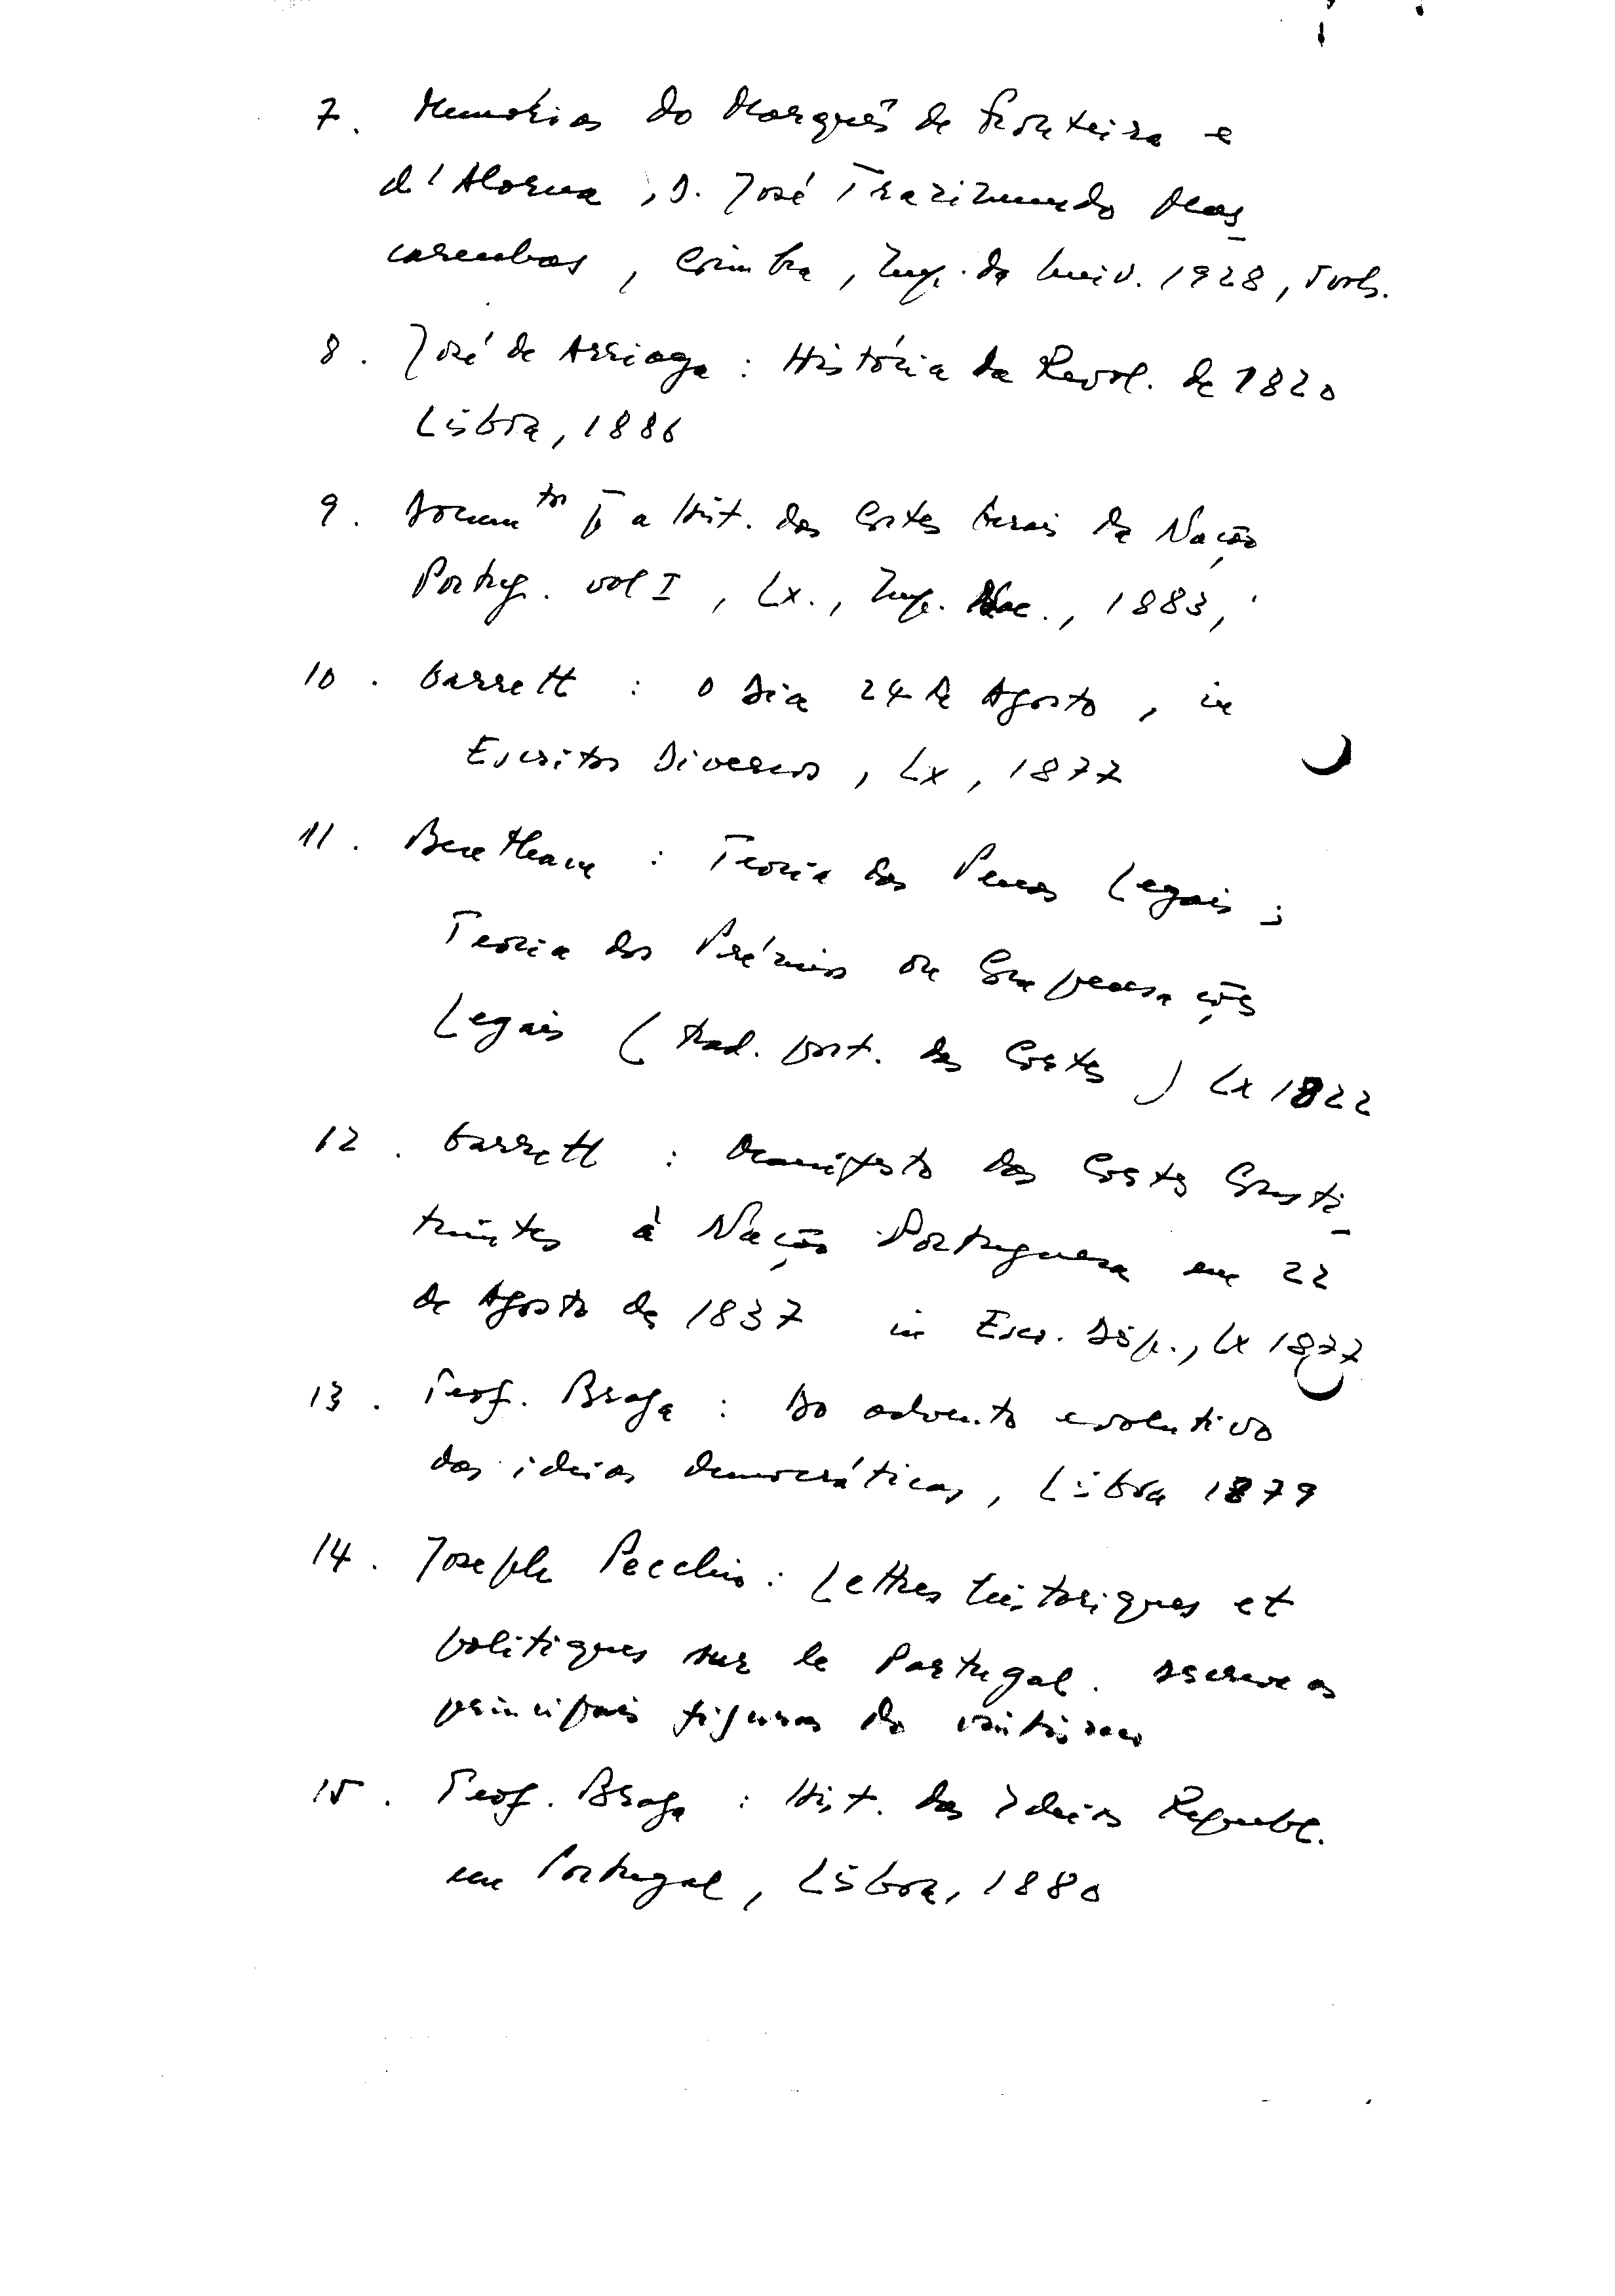 7. Memórias do Marquês de Fronteira e
d'Alorna, D. José Trazimundo Mas-
carenhas, Coimbra, Imp. da Univ. 1928, 5 vols.
8. José de Arriaga : História da Revol. de 1820
Lisboa, 1886
9. Documtos p̄ a Hist. das Cortes Gerais da Nação
Portug. vol I, Lx., Imp. Nac., 1883,
10. Garrett : O Dia 24 de Agosto, in
Escritos Diversos, Lx, 1877
11. Bentham : Teoria das Penas Legais;
Teoria dos Prémios ou Compensações
Legais (trad. port. das Cortes) Lx 1822
12. Garrett : Manifesto das Cortes Consti-
tuintes à Nação Portuguesa em 22
de Agosto de 1837 in Escr. Disp., Lx 1877
13. Teof. Braga : Do advento evolutivo
das ideias democráticas, Lisboa 1879
14. Joseph Pecchio: Lettres historiques et
politiques sur le Portugal. Descreve as
principais figuras do vintismo
15. Teof. Braga : Hist. das Ideias Republ.
em Portugal, Lisboa, 1880